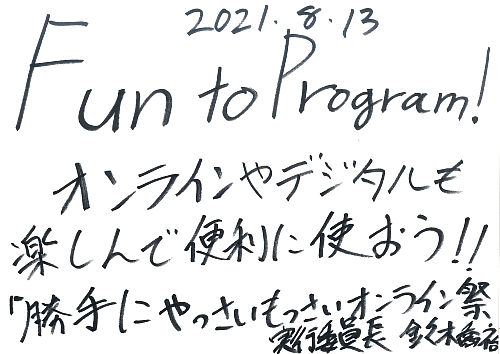 2021.8.13
Fun to Program!
オンラインやデジタルも
楽しんで便利に使おう!!
「勝手にやっさいもっさいオンライン祭
実行委員長 鈴木